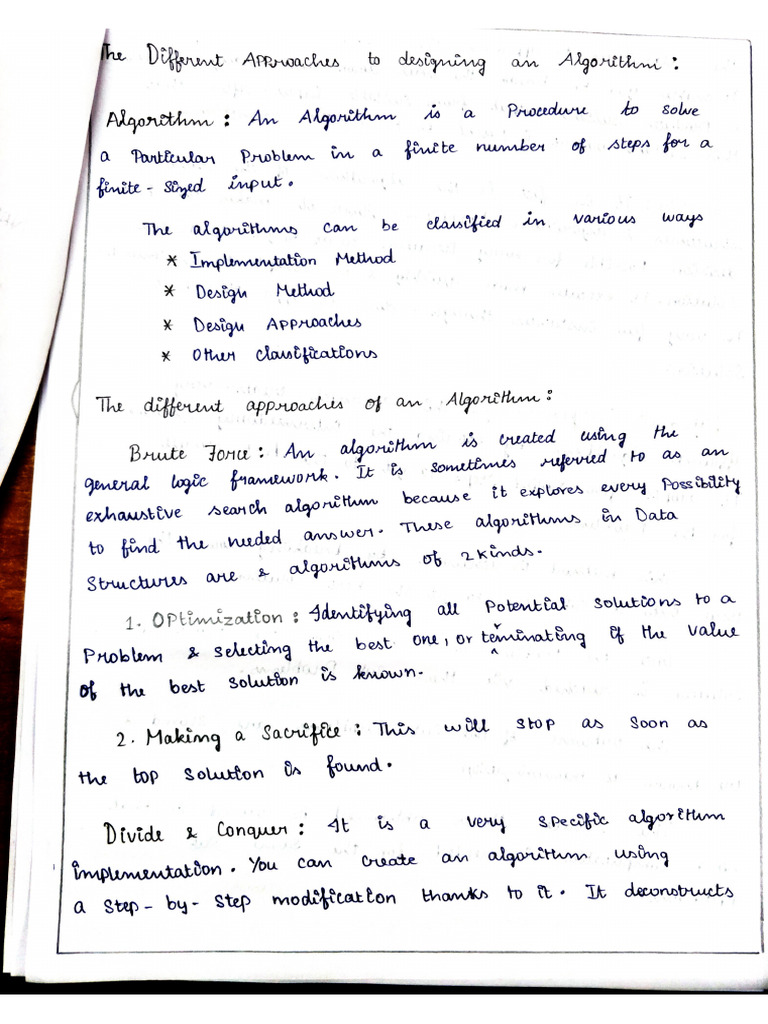 The Different Approaches to designing an Algorithm:
Algorithm: An Algorithm is a Procedure to solve
a Particular Problem in a finite number of steps for a
finite-sized input.
The algorithms can be classified in various ways
* Implementation Method
* Design Method
* Design Approaches
* Other Classifications
The different approaches of an Algorithm:
Brute Force: An algorithm is created using the
general logic framework. It is sometimes referred to as an
exhaustive search algorithm because it explores every Possibility
to find the needed answer. These algorithms in Data
Structures are & algorithms of 2 kinds.
1. Optimization: Identifying all Potential solutions to a
Problem & selecting the best one, or terminating if the value
of the best solution is known.
2. Making a Sacrifice: This will stop as soon as
the top solution is found.
Divide & Conquer: It is a very specific algorithm
implementation. You can create an algorithm using
a step-by-step modification thanks to it. It deconstructs